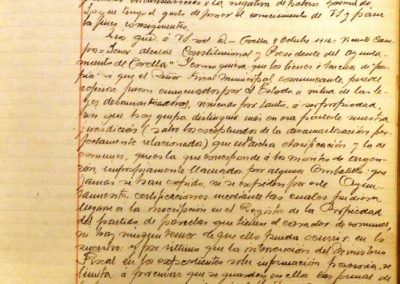 que tengo el gusto de poner el conocimiento de V.S. para
los fines consiguientes.
Dios que a V.S. m. a. - Corella 9 Octubre 1916. - Vicente Sam
Señor Alcalde Constitucional y Presidente del Ayunta
miento de Corella" Y como quiera que los bienes o montes de pro
pios a que el Señor Fiscal Municipal comunicante, puede
referirse fueron enagenados por el Estado a virtud de las le
yes desamortizadoras, viniendo por tanto, a ser propiedad,
sin que hoy grupo distinguir más en esa parte de nuestra
jurisdicción (salvo los exceptuados de la desamortización per
fectamente relacionado) que en dicha clasificación y la de
comunes, que es la que corresponde a los montes de
impropiamente llamado por algunos que
jamás se han expedido, ni se expiden por este Ayun
tamiento, certificaciones mediante las cuales pudiera
llegarse a la inscripción en el Registro de la Propiedad
del partido de parcelas que tienen el carácter de comunes,
no hay ningún temor de que ello pueda ocurrir en lo
sucesivo y por último que la intervención del Ministerio
Fiscal en los expedientes sobre información posesoria, se
limita a procurar que se guarden en ellos las formas de